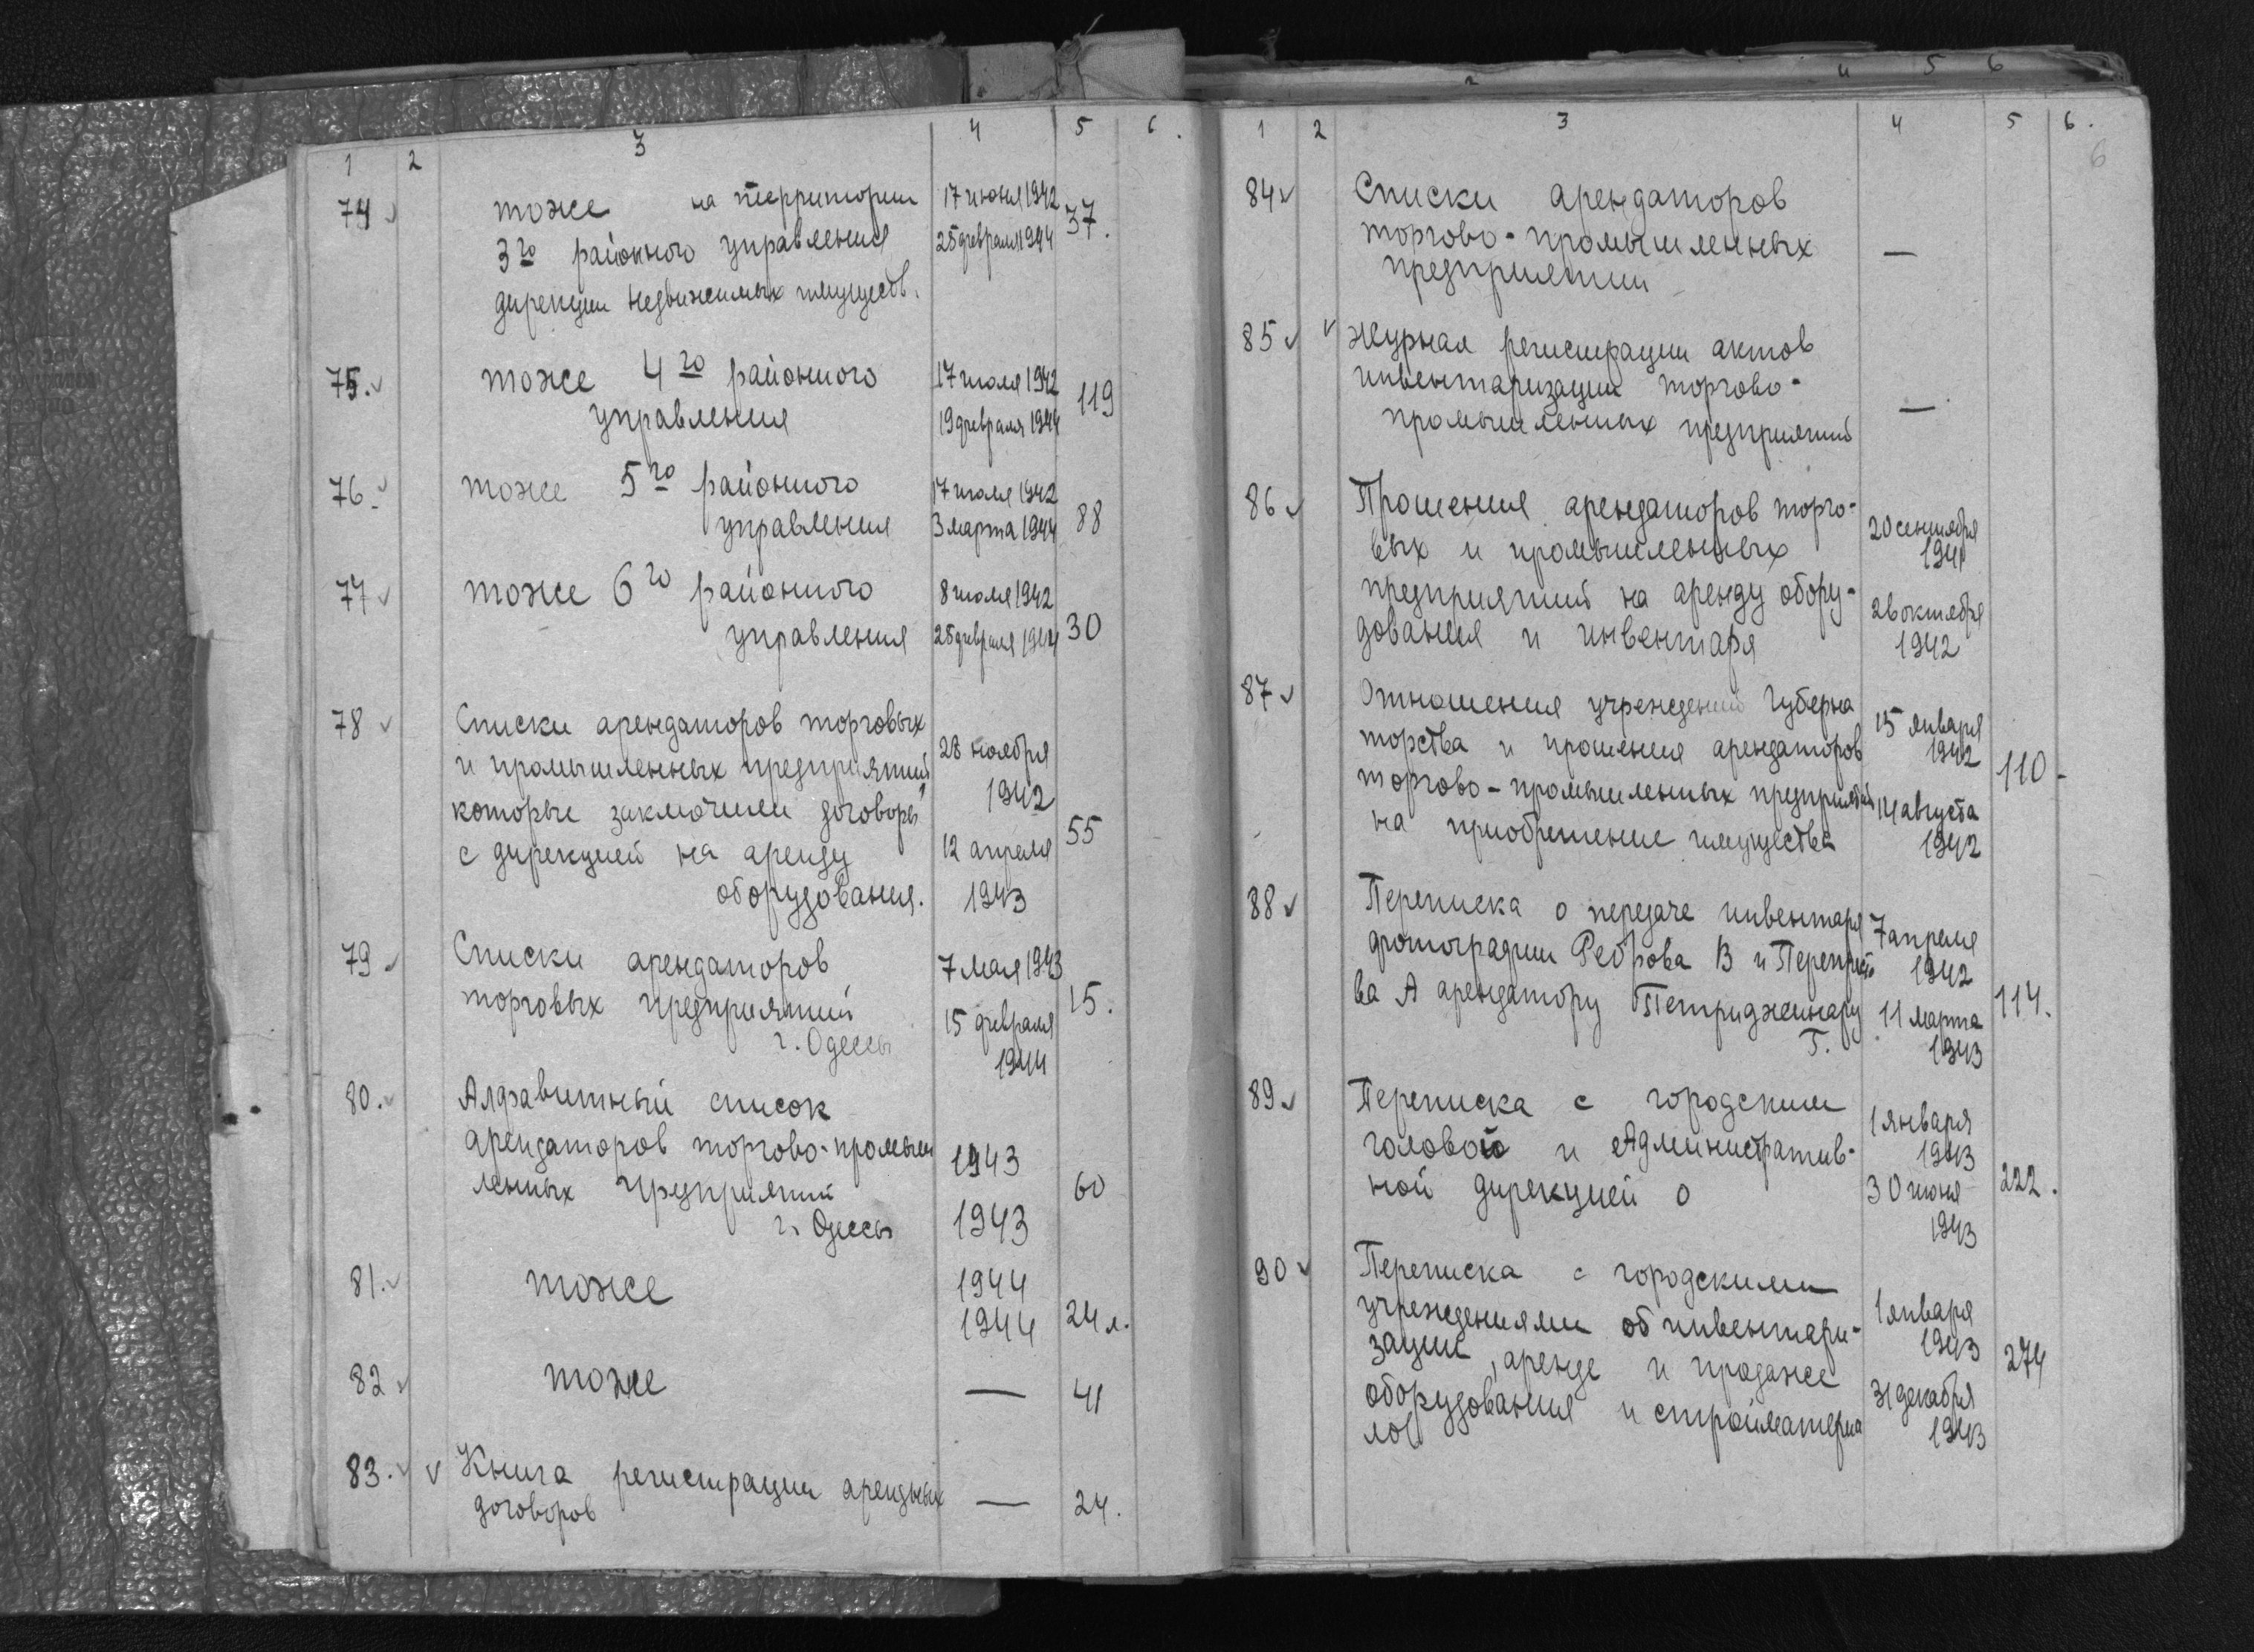 1 2 3 4 5 6.
74 тоже на территории 17 июня 1942 37.
3го районного управления 25 февраля 1944
дирекции недвижимых имуществ.
75. тоже 4го районного 17 июля 1942 119
управления 19 февраля 1944
76. тоже 5го районного 17 июля 1942 88
управления 3 марта 1944
77 тоже 6го районного 8 июля 1942 30
управления 25 февраля 1944
78 Списки арендаторов торговых
и промышленных предприятий, 28 ноября
которые заключили договоры 1942 55
с дирекцией на аренду 12 апреля
оборудования. 1943
79 Списки арендаторов 7 мая 1943 15.
торговых предприятий 15 февраля
г. Одессы 1944
80. Алфавитный список
арендаторов торгово-промыш 1943 60
ленных предприятий
г. Одессы 1943
81. тоже 1944
1944 24 л.
82 тоже — 41
83. v Книга регистрации арендных — 24.
договоров
4 5 6
1 2 3 4 5 6.
6
84 Списки арендаторов
торгово-промышленных —
предприятий
85 v Журнал регистрации актов
инвентаризации торгово-
промышленных предприятий —
86 Прошения арендаторов торго-
вых и промышленных 20 сентября
1941
предприятий на аренду обору- 26 октября
дования и инвентаря 1942
87 Отношения учреждений Губерна
торства и прошения арендаторов 15 января
1942 110-
торгово-промышленных предприятий 14 августа
на приобретение имущества 1942
88 Переписка о передаче инвентаря 7 апреля
фотографии Реброва В и 1942 114.
ва А арендатору 11 марта
Г. 1943
89 Переписка с городским
головой и Административ- 1 января
1943
ной дирекцией о 30 июня 222.
1943
90 Переписка с городскими
учреждениями об инвентари- 1 января
1943
зации, аренде и продаже 274
оборудования и стройматериа 31 декабря
лов 1943